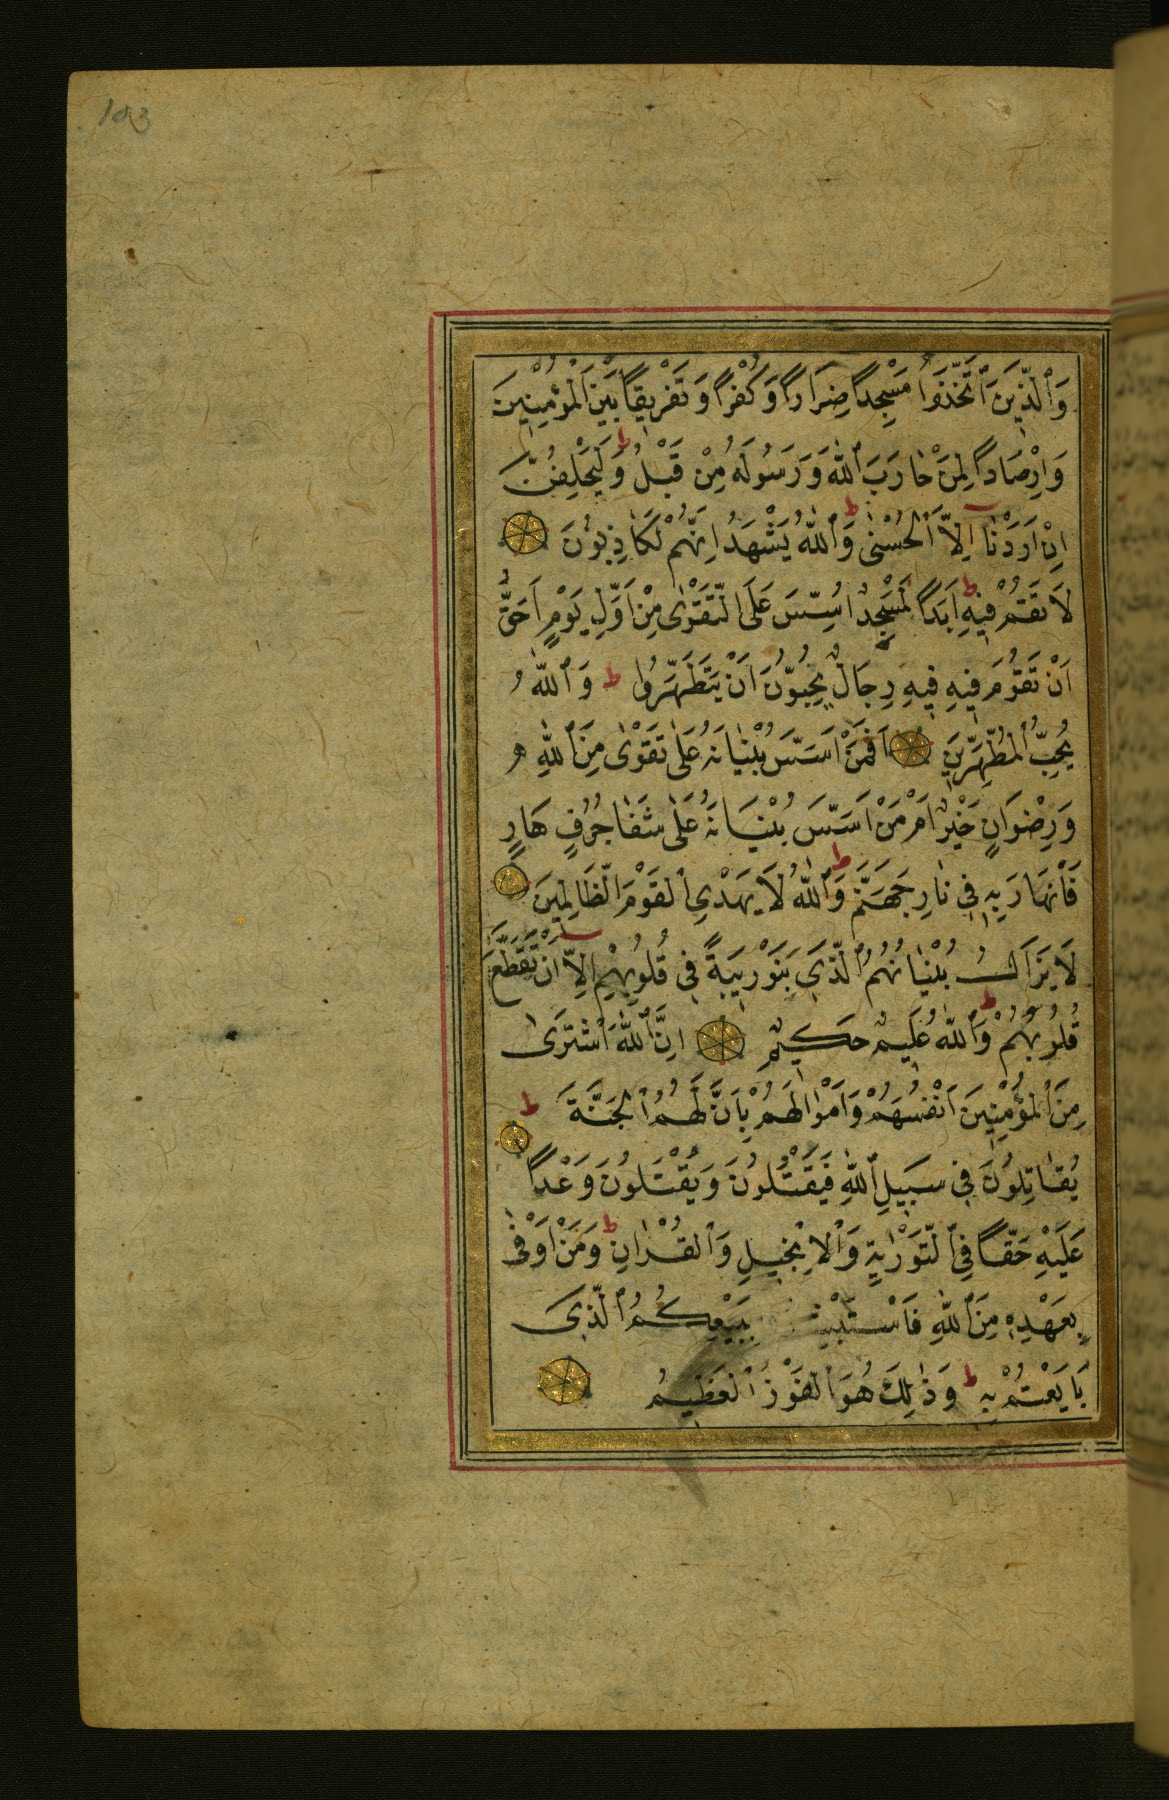 103
وَٱلَّذِينَ ٱتَّخَذُوا مَسْجِداً ضِرَاراً وَكُفْراً وَتَفْرِيقاً بَيْنَ ٱلْمُؤْمِنِينَ
وَاِرْصَاداً لِمَنْ حَارَبَ ٱللّٰهَ وَرَسُولَهُ مِنْ قَبْلُ ط وَلَيَحْلِفُنَّ
اِنْ اَرَدْنَا اِلَّا ٱلْحُسْنٰى ط وَٱللّٰهُ يَشْهَدُ اِنَّهُمْ لَكَاذِبُونَ
لَا تَقُمْ فِيهِ اَبَداً ط لَمَسْجِدٌ اُسِّسَ عَلَى ٱلتَّقْوٰى مِنْ اَوَّلِ يَوْمٍ اَحَقُّ
اَنْ تَقُومَ فِيهِ فِيهِ رِجَالٌ يُحِبُّونَ اَنْ يَتَطَهَّرُوا ط وَٱللّٰهُ
يُحِبُّ ٱلْمُطَّهِّرِينَ اَفَمَنْ اَسَّسَ بُنْيَانَهُ عَلٰى تَقْوٰى مِنَ ٱللّٰهِ
وَرِضْوَانٍ خَيْرٌ اَمْ مَنْ اَسَّسَ بُنْيَانَهُ عَلٰى شَفَا جُرُفٍ هَارٍ
فَٱنْهَارَ بِهِ فِي نَارِ جَهَنَّمَ ط وَٱللّٰهُ لَا يَهْدِي ٱلْقَوْمَ ٱلظَّالِمِينَ
لَا يَزَالُ بُنْيَانُهُمُ ٱلَّذِي بَنَوْ رِيبَةً فِي قُلُوبِهِمْ اِلَّا اَنْ تَقَطَّعَ
قُلُوبُهُمْ ط وَٱللّٰهُ عَلِيمٌ حَكِيمٌ اِنَّ ٱللّٰهَ ٱشْتَرٰى
مِنَ ٱلْمُؤْمِنِينَ اَنْفُسَهُمْ وَاَمْوَالَهُمْ بِاَنَّ لَهُمُ ٱلْجَنَّةَ ط
يُقَاتِلُونَ فِي سَبِيلِ ٱللّٰهِ فَيَقْتُلُونَ وَيُقْتَلُونَ وَعْداً
عَلَيْهِ حَقّاً فِي ٱلتَّوْرٰيةِ وَٱلْاِنْجِيلِ وَٱلْقُرْاٰنِ ط وَمَنْ اَوْفٰى
بِعَهْدِهِ مِنَ ٱللّٰهِ بِبَيْعِكُمُ ٱلَّذِي
بَايَعْتُمْ بِهِ ط وَذٰلِكَ هُوَ ٱلْفَوْزُ ٱلْعَظِيمُ